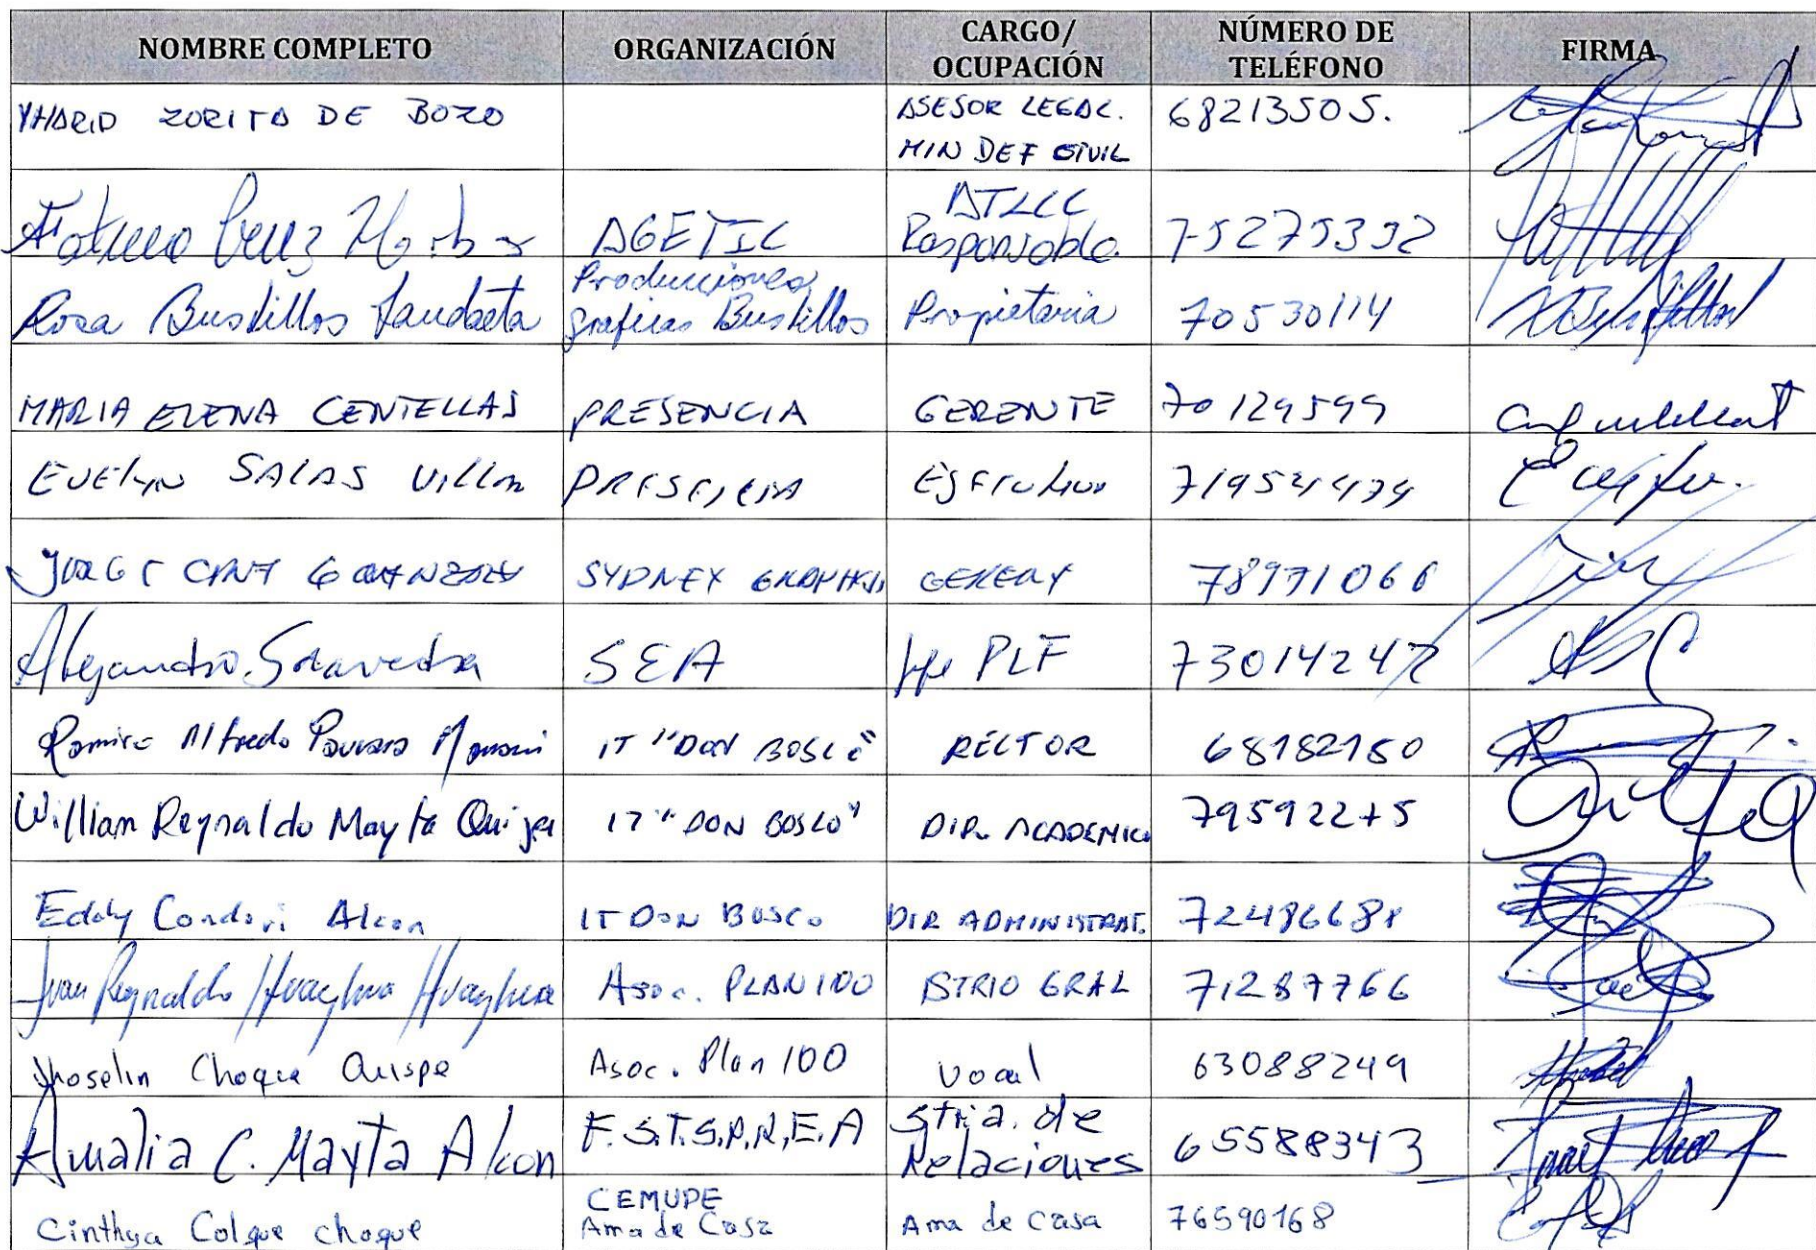 NOMBRE COMPLETO ORGANIZACIÓN CARGO/ OCUPACIÓN NÚMERO DE TELÉFONO FIRMA
YHARID ZORITA DE BOZO ASESOR LEGAL. MIN DEF CIVIL 68213505.
Cruz AGETIC ATLCC Responsable. 75275332
Rosa Bustillos Landaeta Producciones graficas Bustillos Propietaria 70530114
MARIA ELENA CENTELLAS PRESENCIA GERENTE 70129599
EVELyN SALAS Villa PRESENCIA
SYDNEY 78971066
Alejandro Saravedra SEA Jefe PLF 73014247
Ramiro Alfredo Mamani IT "DON BOSCO" RECTOR 68182150
William Reynaldo Mayta Quispe IT "DON BOSCO" DIR. ACADEMICO 79592275
Eddy Condori Alcon IT DON BOSCO DIR ADMINISTRAT.
Juan Reynaldo Huayhua Huayhua Asoc. PLAN 100 STRIO GRAL 71287766
Jhoselin Choque Quispe Asoc. Plan 100 Vocal 63088249
Amalia C. Mayta Alcon F.S.T.S.P.R.E.A Stria. de Relaciones 65588343
Cinthya Colque choque CEMUPE Ama de Casa Ama de casa 76590168